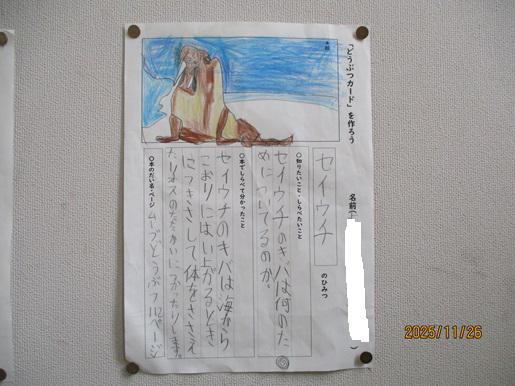 「どうぶつカード」を作ろう
名前(　　　)
セイウチ
のひみつ
○知りたいこと・しらべたいこと
セイウチのキバは何のた
めについてるのか。
○本でしらべて分かったこと
セイウチのキバは海から
こおりにはい上がるとき
につきさして体をささえ
たりオスのたたかいにつかったりします。
○本のだい名・ページ
ムーブどうぶつ112ページ
2025/11/26